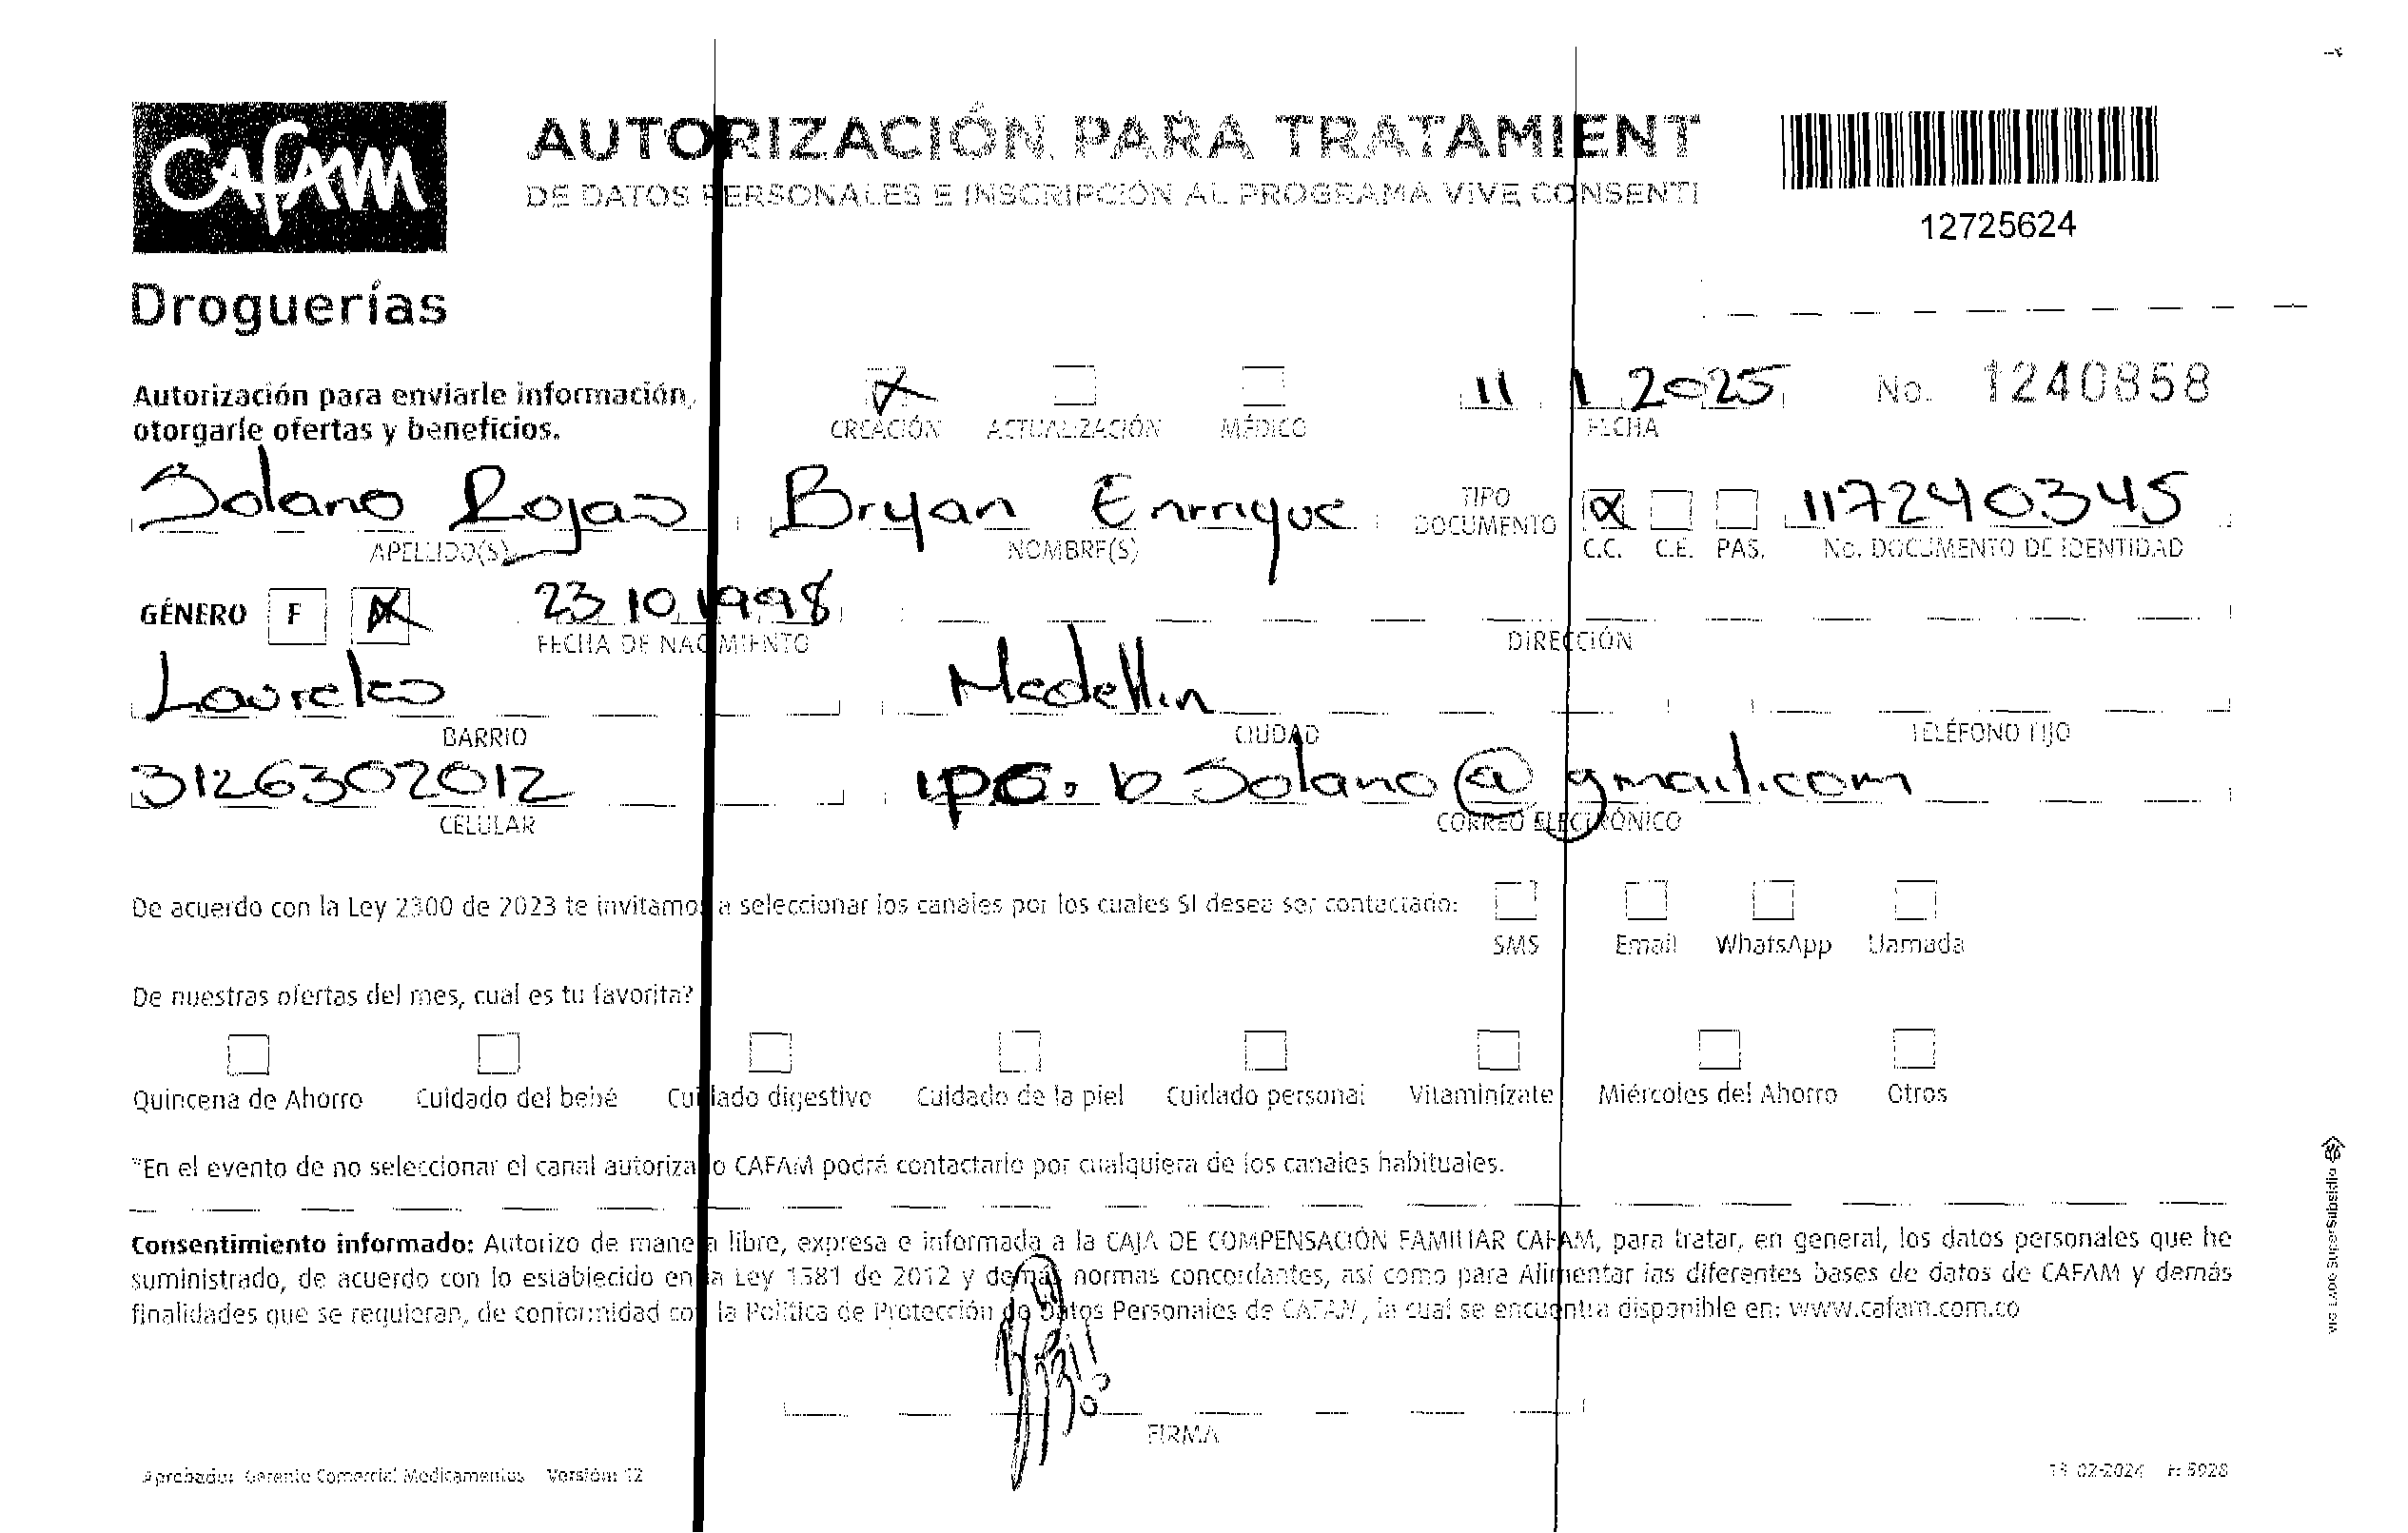 Cafam
AUTORIZACIÓN PARA TRATAMIENT
DE DATOS PERSONALES E INSCRIPCIÓN AL PROGRAMA VIVE CONSENTI
12725624
Droguerías
Autorización para enviarle información,
otorgarle ofertas y beneficios.
CREACIÓN ACTUALIZACIÓN MÉDICO
11 1 2025
FECHA
No. 1240858
Solano Rojas Bryan Enrrique
APELLIDO(S) NOMBRE(S)
TIPO DOCUMENTO
C.C. C.E. PAS.
117240345
No. DOCUMENTO DE IDENTIDAD
GÉNERO F
23 10 1998
FECHA DE NACIMIENTO DIRECCIÓN
Laureles Medellin
BARRIO CIUDAD TELÉFONO FIJO
3126302012 b Solano@gmail.com
CELULAR CORREO ELECTRÓNICO
De acuerdo con la Ley 2300 de 2023 te invitamos a seleccionar los canales por los cuales SI desea ser contactado:
SMS Email WhatsApp Llamada
De nuestras ofertas del mes, cual es tu favorita?
Quincena de Ahorro Cuidado del bebé Cuidado digestivo Cuidado de la piel Cuidado personal Vitaminízate Miércoles del Ahorro Otros
*En el evento de no seleccionar el canal autorizado CAFAM podrá contactarlo por cualquiera de los canales habituales.
Consentimiento informado: Autorizo de manera libre, expresa e informada a la CAJA DE COMPENSACIÓN FAMILIAR CAFAM, para tratar, en general, los datos personales que he
suministrado, de acuerdo con lo establecido en la Ley 1581 de 2012 y demás normas concordantes, así como para Alimentar las diferentes bases de datos de CAFAM y demás
finalidades que se requieran, de conformidad con la Política de Protección de Datos Personales de CAFAM, la cual se encuentra disponible en: www.cafam.com.co
FIRMA
Aprobado: Gerente Comercial Medicamentos Versión: 12
13-02-2024 F: 5928
VIGILADO SuperSubsidio